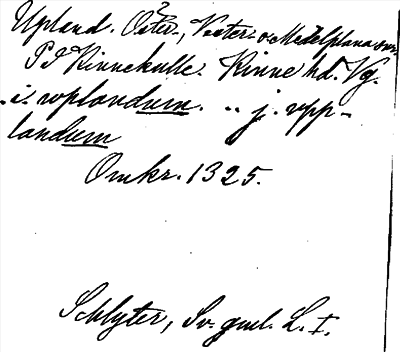 Upland. Öster-, Vester- o. Medelplana snr
På Kinnekulle. Kinne hd. Vg.
.i. voplandum. .. j. vpp-
landum
Omkr. 1325.
Schlyter, Sv. gml. L. I.